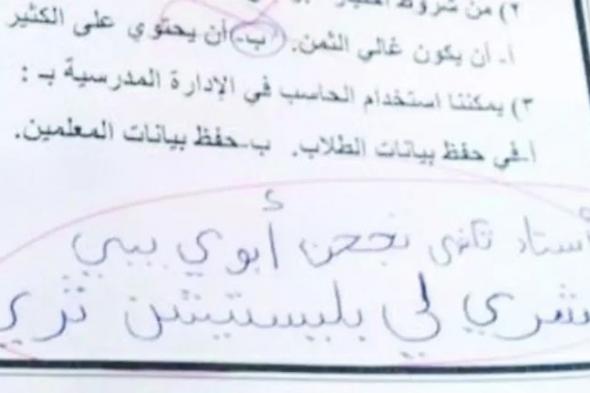 ٢) من شروط
أ- أن يكون غالي الثمن. ب- أن يحتوي على الكثير
٣) يمكننا استخدام الحاسب في الإدارة المدرسية بـ :
أ-في حفظ بيانات الطلاب. ب-حفظ بيانات المعلمين.
أستاد تكفى نجحن أبوي يبي
يشري لي بليستيشن ثري